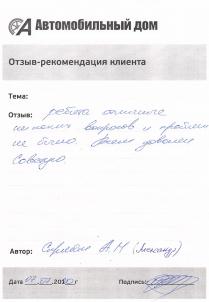 Автомобильный дом
Отзыв-рекомендация клиента
Тема:
Отзыв: ребята отличные
никаких вопросов и проблем
не было. Всем доволен
Автор: А.Н (Александр)
Дата 07.07.2010 Подпись: